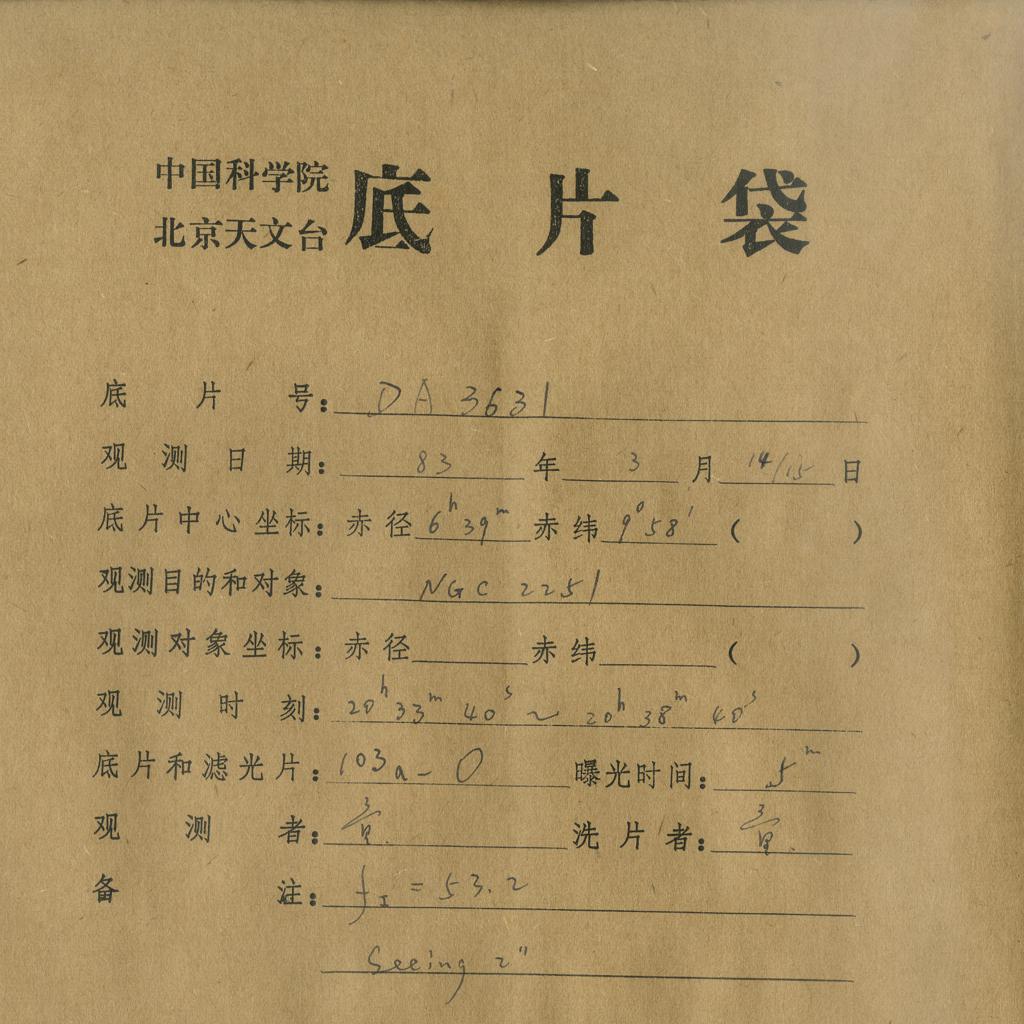 中国科学院
北京天文台 底片袋
底片号: DA 3631
观测日期: 83 年 3 月 14/15 日
底片中心坐标: 赤径 6h 39m 赤纬 9° 58' ( )
观测目的和对象: NGC 2251
观测对象坐标: 赤径 赤纬 ( )
观测时刻: 20h 33m 40s ~ 20h 38m 40s
底片和滤光片: 103a-O 曝光时间: 5m
观测者: 洗片者:
备注: fI = 53.2
Seeing 2"